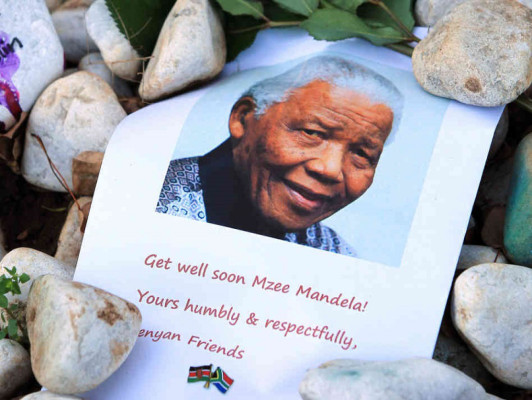 Get well soon Mzee Mandela!
Yours humbly & respectfully,
enyan Friends